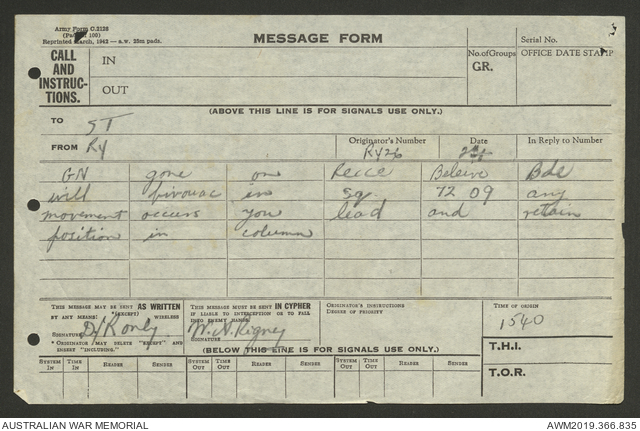 Army Form C.2128
(Pads of 100)
Reprinted March, 1942 — a.w. 25m pads.
MESSAGE FORM
Serial No.
CALL AND INSTRUC- TIONS.
IN
OUT
No. of Groups
GR.
OFFICE DATE STAMP
(ABOVE THIS LINE IS FOR SIGNALS USE ONLY.)
TO ST
FROM Ry
Originator's Number Ry26
Date
In Reply to Number
GN gone on Recce Beleive Bde
will bivouac in sq. 72 09 any
movement occurs you lead and retain
position in column
THIS MESSAGE MAY BE SENT AS WRITTEN
BY ANY MEANS. (EXCEPT) WIRELESS
SIGNATURE
* ORIGINATOR MAY DELETE "EXCEPT" AND
INSERT "INCLUDING."
THIS MESSAGE MUST BE SENT IN CYPHER
IF LIABLE TO INTERCEPTION OR TO FALL
INTO ENEMY HANDS.
SIGNATURE W. A. Rigney
ORIGINATOR'S INSTRUCTIONS
DEGREE OF PRIORITY
TIME OF ORIGIN
1540
T.H.I.
T.O.R.
(BELOW THIS LINE IS FOR SIGNALS USE ONLY.)
SYSTEM IN TIME IN READER SENDER SYSTEM OUT TIME OUT READER SENDER SYSTEM OUT TIME OUT READER SENDER
AUSTRALIAN WAR MEMORIAL
AWM2019.366.835